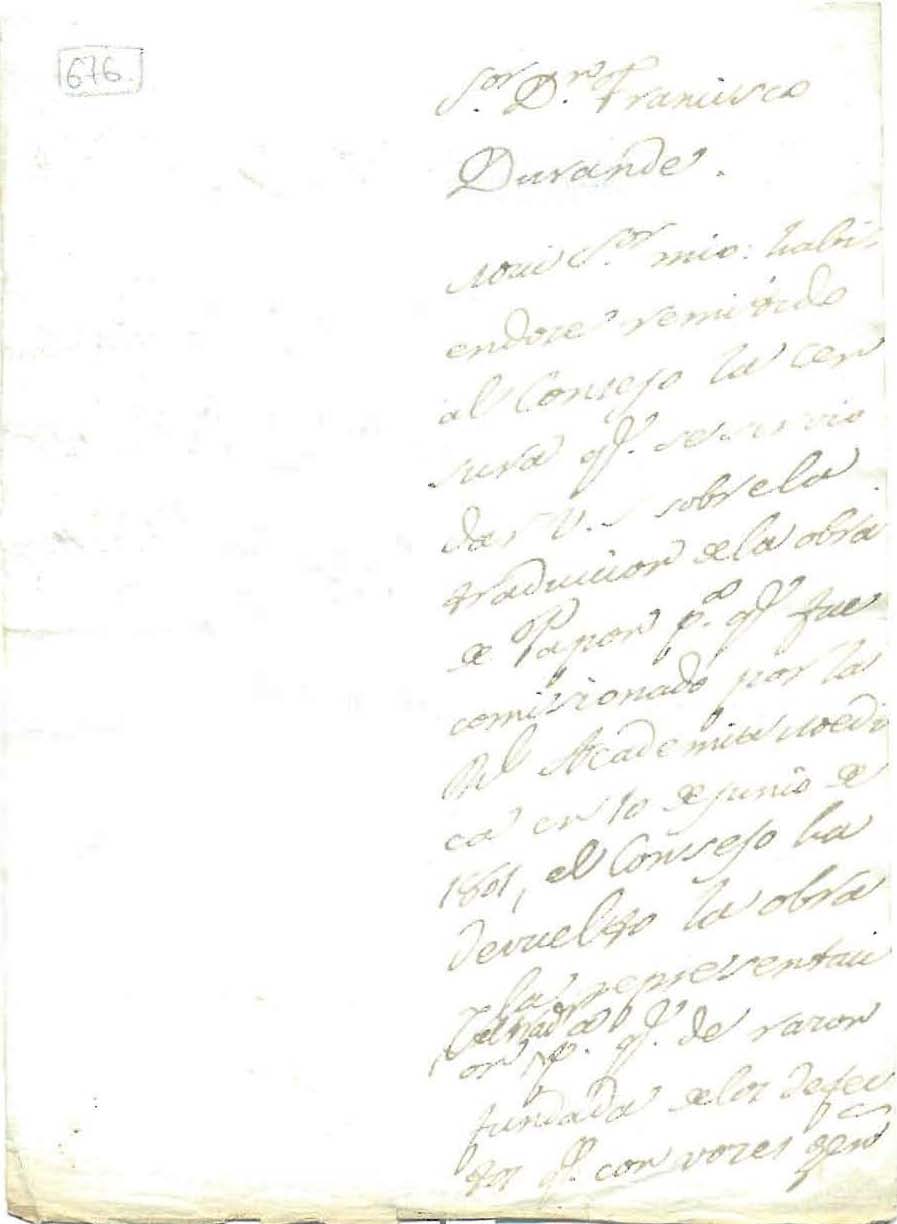 676.
S.or D.n Francisco
Durande.
Mui S.or mio: habi-
endose remitido
al Consejo la cen
sura q.e se sirvio
dar V. sobre la
traducion de la obra
de Papon p.a q.e fue
comisionado por la
R.l Academia Medi
ca en 10 de junio de
1801, el Consejo ha
devuelto la obra
y la representaci
on p.a q.e de razon
fundada de los defec
tos q.e con vozes gen